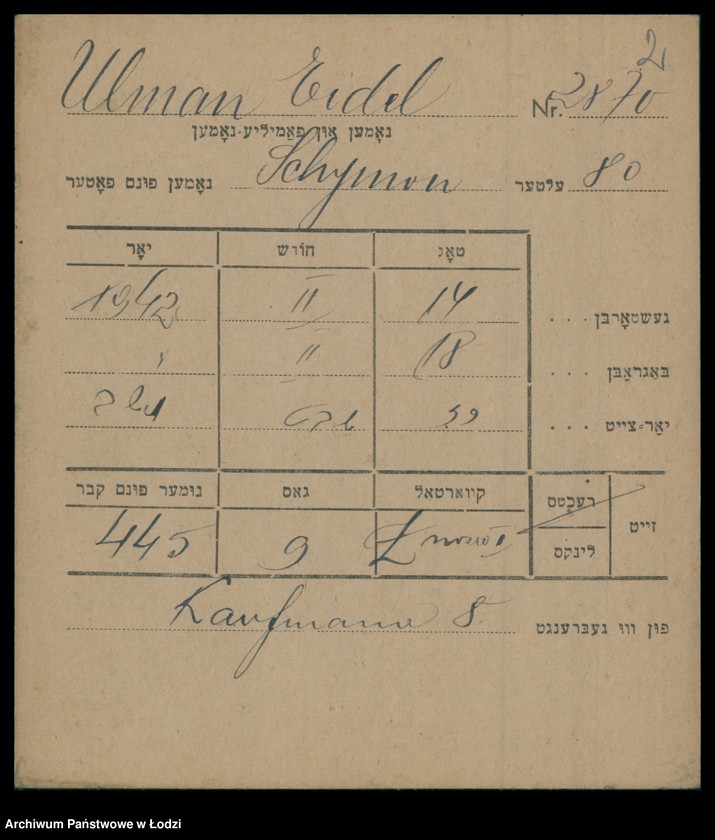 2
Ulman Eidel Nr. 2870
נאָמען און פאַמיליע-נאָמען
נאָמען פונם פאָטער Schymon עלטער 80
יאָר חורש טאָג
1942 II 14 געשטאָרבן . . .
" II 18 באַגראָבן . . .
תש"ב שבט כז יאָר-צייט . . .
נומער פונם קבר גאס קווארטאל רעכטס זייט
445 9 לינקס
Kaufmanna 8. פון וווּ געברענגט
Archiwum Państwowe w Łodzi